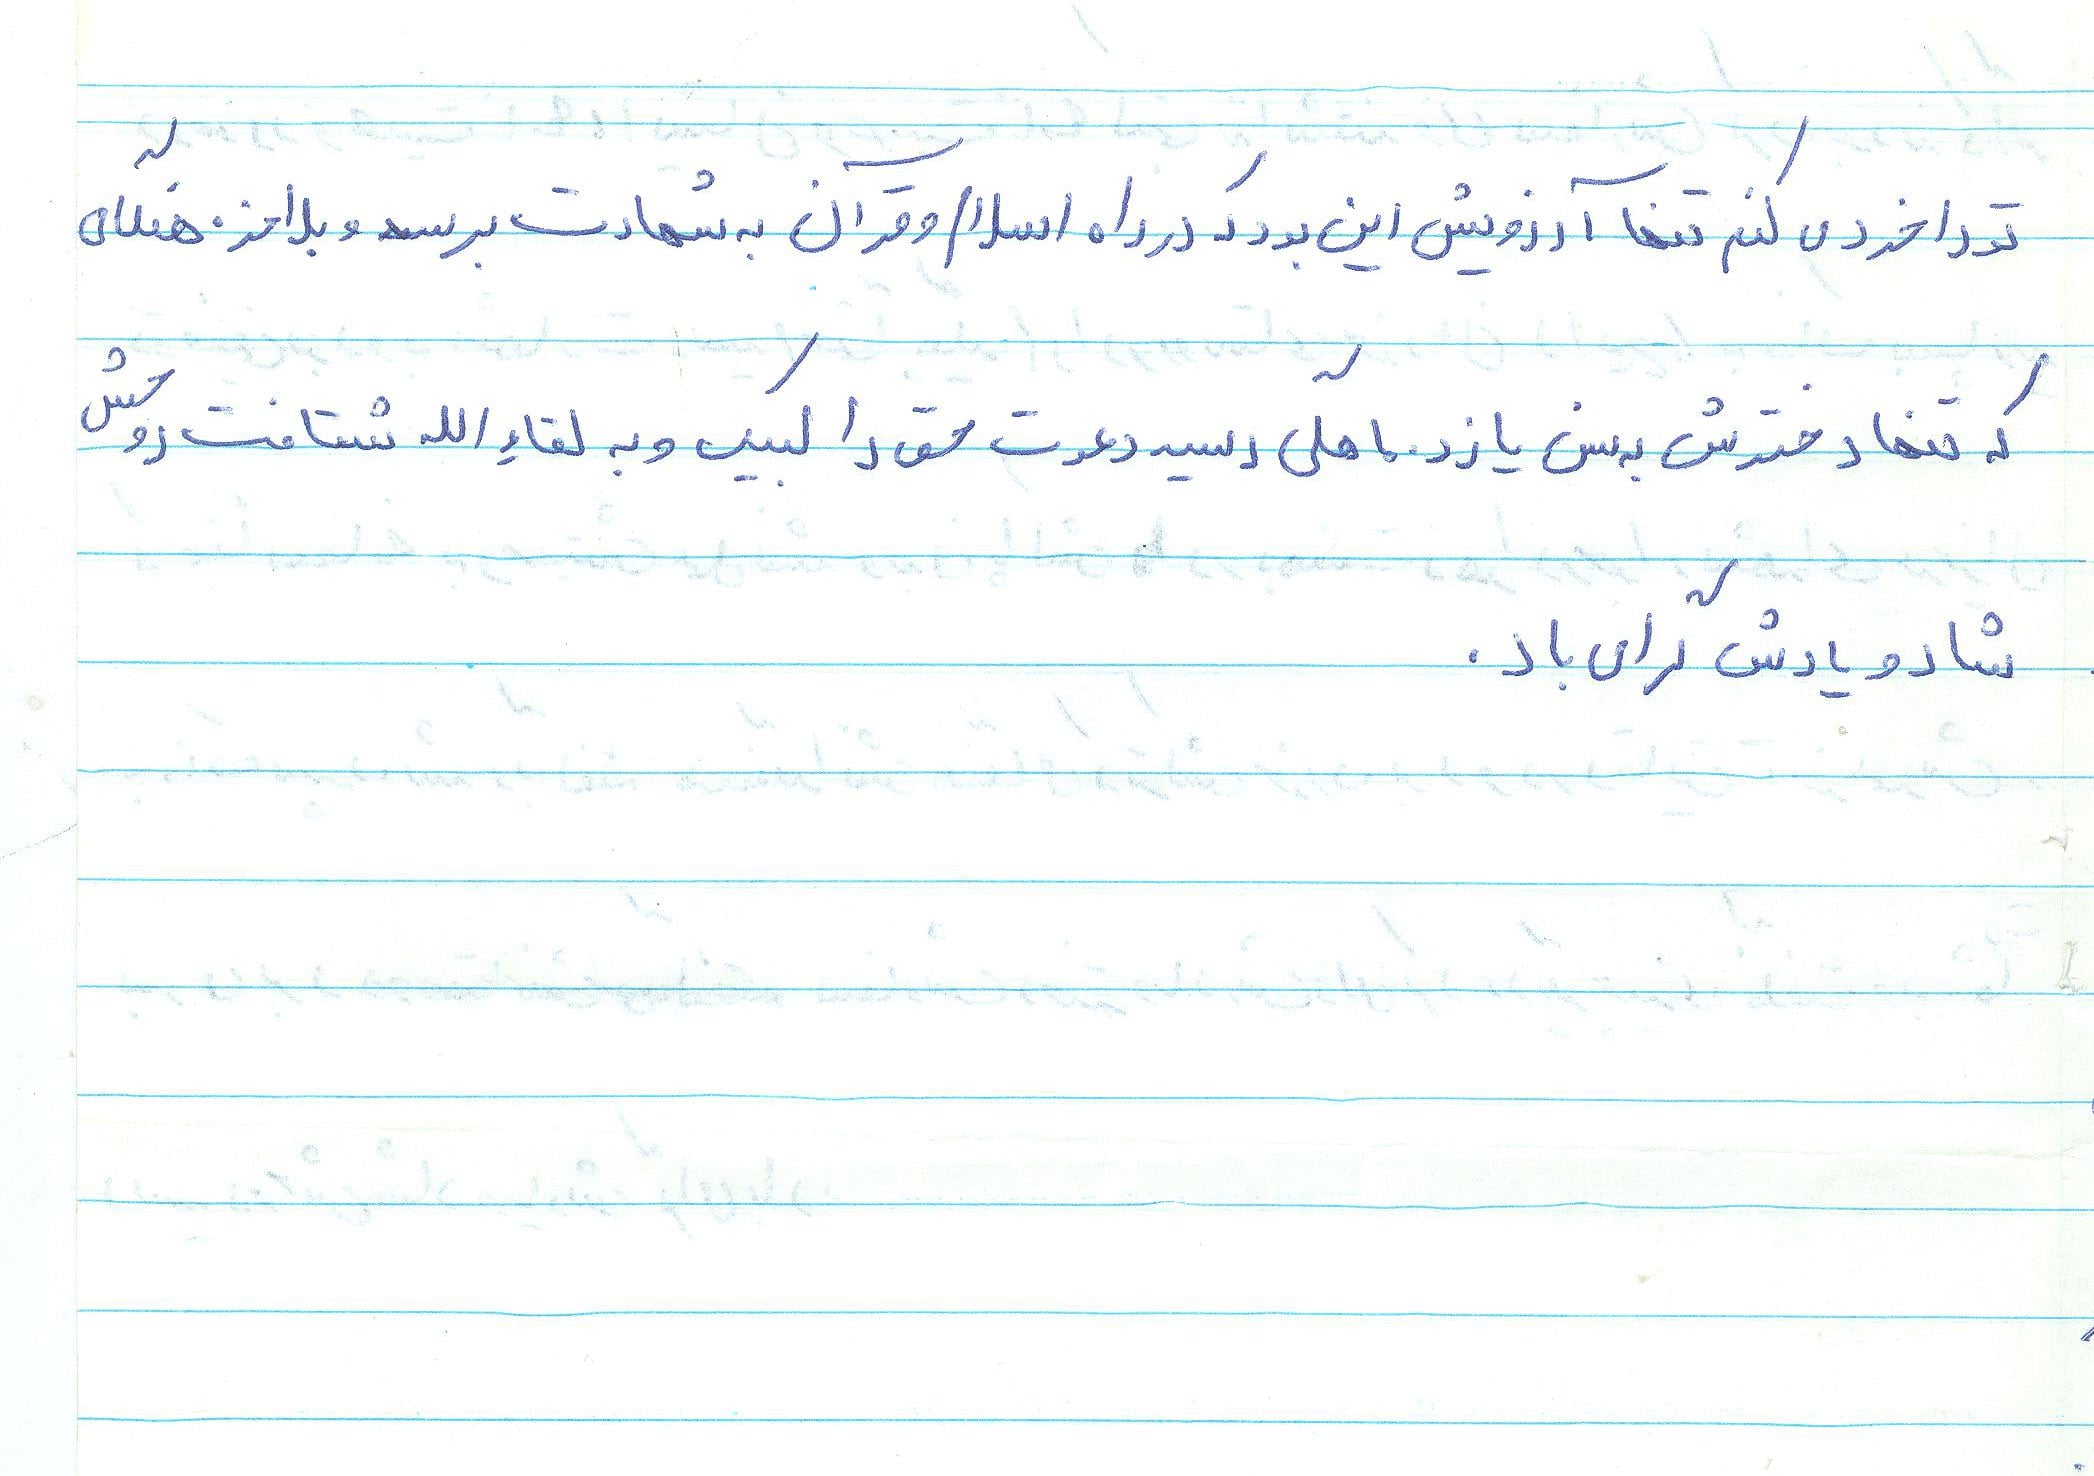 تو را خرد می کنم تنها آرزویش این بود که در راه اسلام و قرآن به شهادت برسد و بلاخره هنگامی
که تنها دخترش به سن یازده ماهگی رسید دعوت حق را لبیک و به لقاء الله شتافت روحش
شاد و یادش گرامی باد.